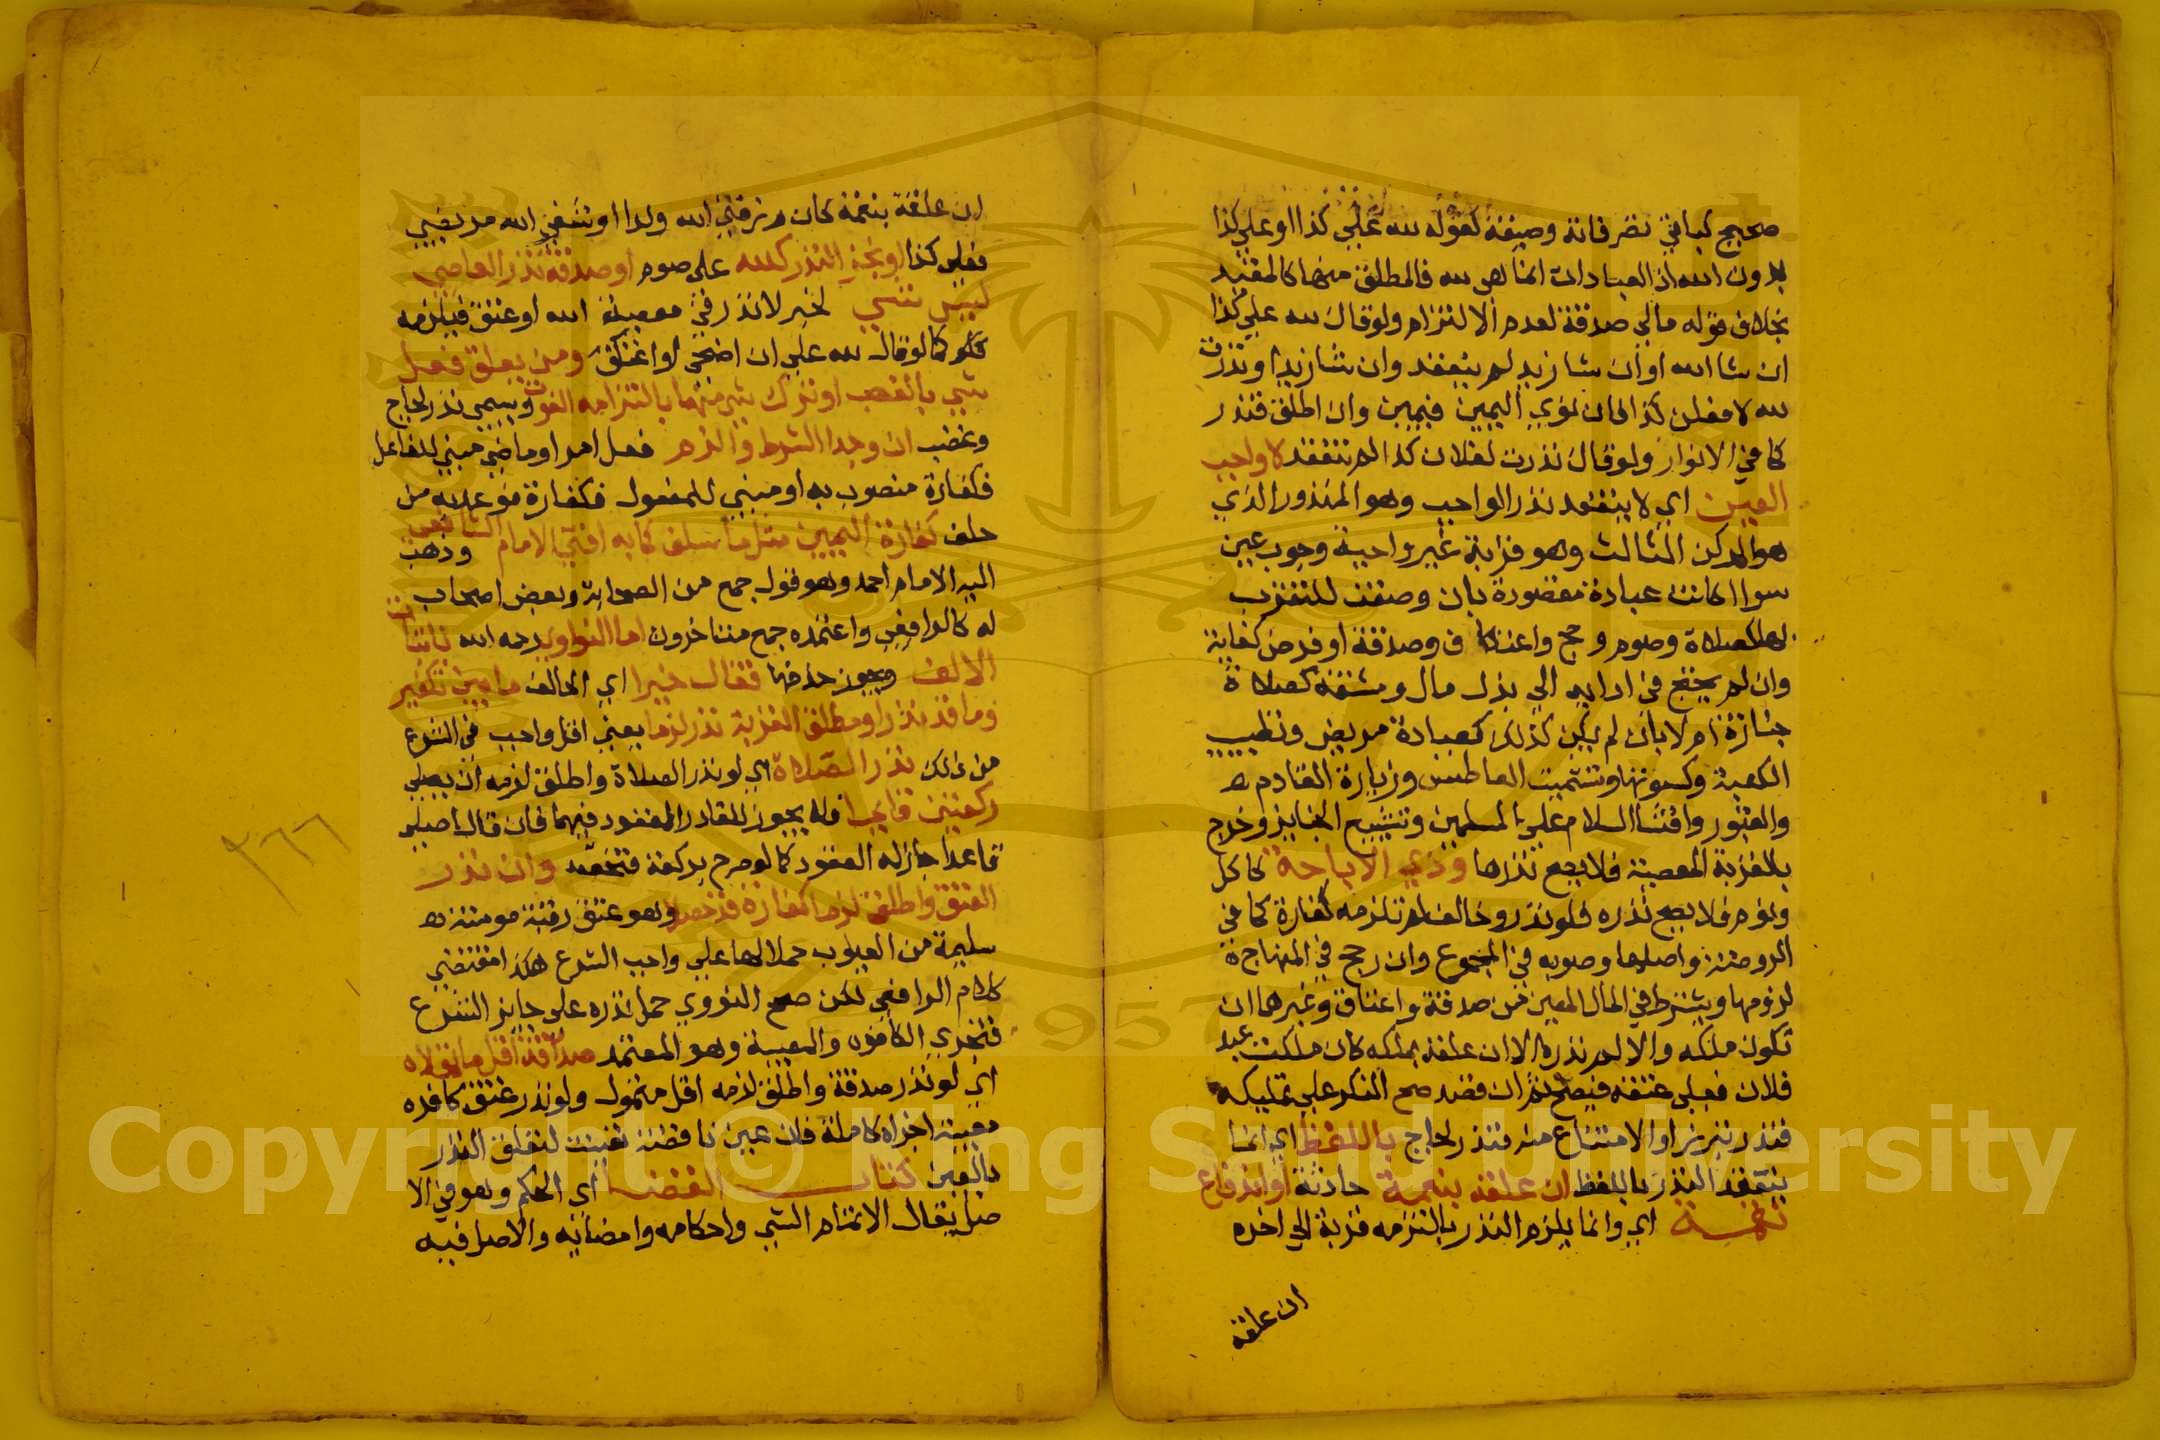 صحيح كباقي تصرفاته وصيغة كقوله لله علي كذا او علي كذا
بدون لله اذ العبادات انما هي لله فالمطلق منها كالمقيد
بخلاف قوله مالي صدقة لعدم الالتزام ولو قال لله علي كذا
ان شا الله او ان شا زيد لم ينعقد وان شا زيد او نذرت
لله لافعلن كذا فان نوي اليمين فيمين وان اطلق فنذر
كما في الانوار ولو قال نذرت لفلان كذا لم ينعقد لا واجب
العين اي لا ينعقد نذر الواجب وهو المنذور الذي
هو الركن الثالث وهو قربة غير واجبة وجوب عين
سوا كانت عبادة مقصودة بان وضعت للتقرب
بها كصلاة وصوم وحج واعتكاف وصدقة او فرض كفاية
وان لم يحتج في ادايه الي بذل مال ومشقة كصلاة
جنازة ام لا بان لم يكن كذلك كعيادة مريض وتطييب
الكعبة وكسوتها وتشميت العاطس وزيارة القادم
والقبور وافشا السلام علي المسلمين وتشييع الجنايز وخرج
بالقربة المعصية فلا يصح نذرها وذي الاباحة كاكل
ونوم فلا يصح نذره فلو نذر وخالف لم تلزمه كفارة كما في
الروضة واصلها وصوبه في المجموع وان رجح في المنهاج
لزومها ويشترط في المال المعين من صدقة واعتاق وغيرهما ان
تكون ملكه والا لم نذره الا ان علقه بملكه كان ملكت عبد
فلان فعلي عتقه فيصح ثم ان قصد صح الشكر علي تمليكه
فنذر تبرر او الامتناع منه فنذر لجاج باللفظ اي انما
ينعقد النذر باللفظ ان علقه بنعمة حادثة او اندفاع
نقمة اي وانما يلزم النذر بالتزمه قربة الي اخره
ان علقه
ان علقه بنعمة كان رزقني الله ولدا او شفي الله مريضي
فعلي كذا او نجز النذر كلله علي صوم او صدقة نذر المعاصي
ليس بشي لخبر لا نذر في معصية الله او عتق فيلزمه
كما لو قال لله علي ان اضحي او اعتكف ومن يعلق فعل
شي بالغضب او ترك شي منهما بالتزامه القرب ويسمي نذر لجاج
وغضب ان وجد الشرط والزم فعل امر او ماضي مبني للفاعل
فكفارة منصوب به او مبني للمفعول فكفارة مرفوع علي من
حلف كفارة اليمين مثل ما سلف كما به افتي الامام الشافعي وذهب
اليه الامام احمد وهو قول جمع من الصحابة وبعض اصحاب
له كالرافعي واعتمده جمع متاخرون اما النواوي رحمه الله باثبات
الالف ويجوز حذفها فقال خيرا اي الحالف ما بين تكفير
وما قد نذرا ومطلق القربة نذر لزما يعني اقل واجب في الشرع
من ذلك نذر الصلاة اي لو نذر الصلاة واطلق لزمه ان يصلي
ركعتين قايما فلا يجوز للقادر القعود فيهما فان قال اصلي
قاعدا جاز له القعود كما لو صرح بركعة فتجزيه وان نذر
العتق واطلق لزم كفارة قد حصلا وهو عتق رقبة مومنة
سليمة من العيوب حملا لها علي واجب الشرع هكذا مقتضي
كلام الرافعي لكن صحح النووي حمل نذره علي جايز الشرع
فتجزي الكافرة والمعيبة وهو المعتمد صدقة اقل ما تمولا
اي لو نذر صدقة واطلق لزمه اقل متمول ولو نذر عتق كافره
معيبة اجزاه كاملة فان عين ناقصة تعينت لتعلق النذر
بالعين كتاب القضا اي الحكم وهو في الا
صل يقال الاتمام الشي واحكامه وامضايه والاصل فيه
٣٦٦
1957
Copyright © King Saud University